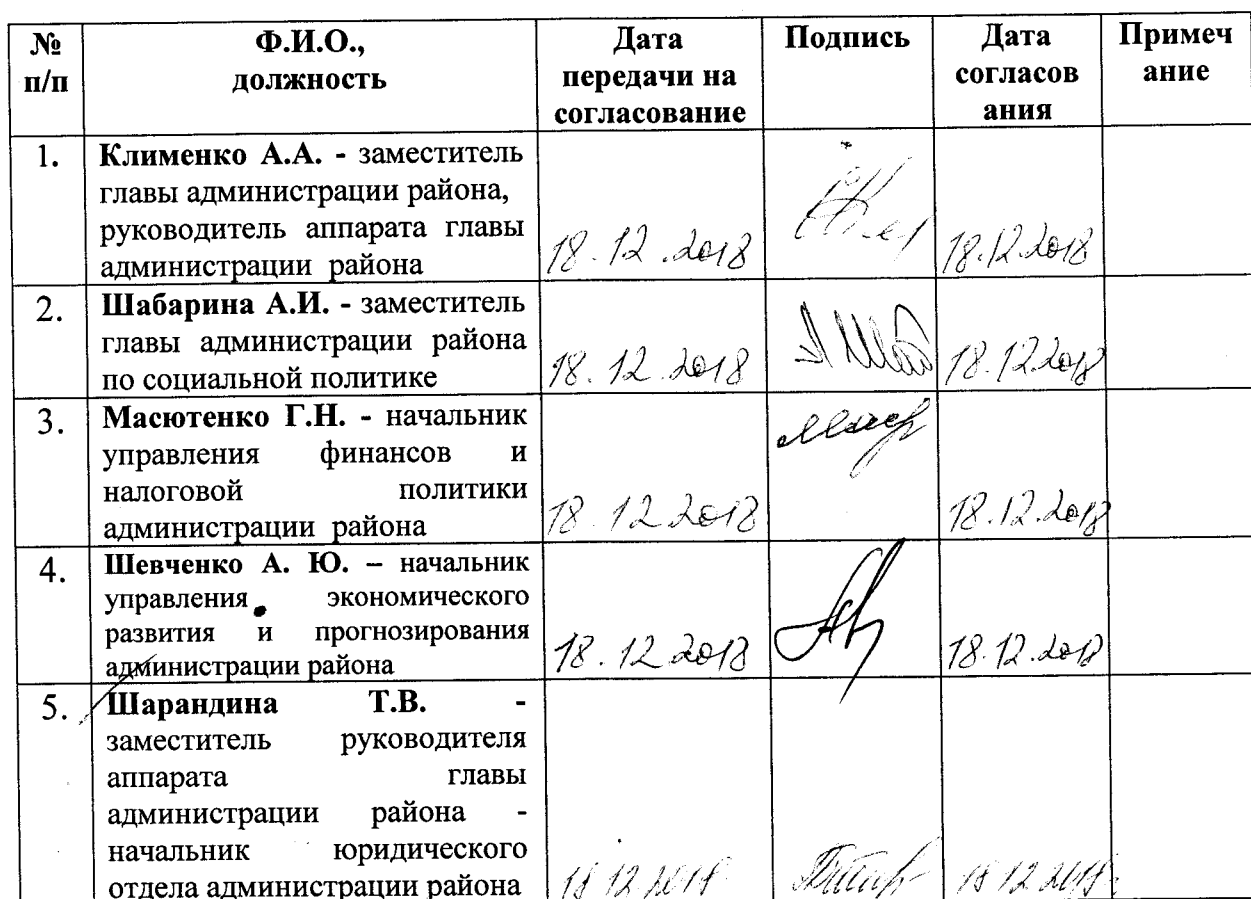 № п/п
Ф.И.О., должность
Дата передачи на согласование
Подпись
Дата согласов ания
Примеч ание
1.
Клименко А.А. - заместитель
главы администрации района,
руководитель аппарата главы
администрации района
18.12.2018
18.12.2018
2.
Шабарина А.И. - заместитель
главы администрации района
по социальной политике
18.12.2018
18.12.2018
3.
Масютенко Г.Н. - начальник
управления финансов и
налоговой политики
администрации района
18.12.2018
18.12.2018
4.
Шевченко А. Ю. – начальник
управления экономического
развития и прогнозирования
администрации района
18.12.2018
18.12.2018
5.
Шарандина Т.В. -
заместитель руководителя
аппарата главы
администрации района -
начальник юридического
отдела администрации района
18 12 2018
18 12 2018